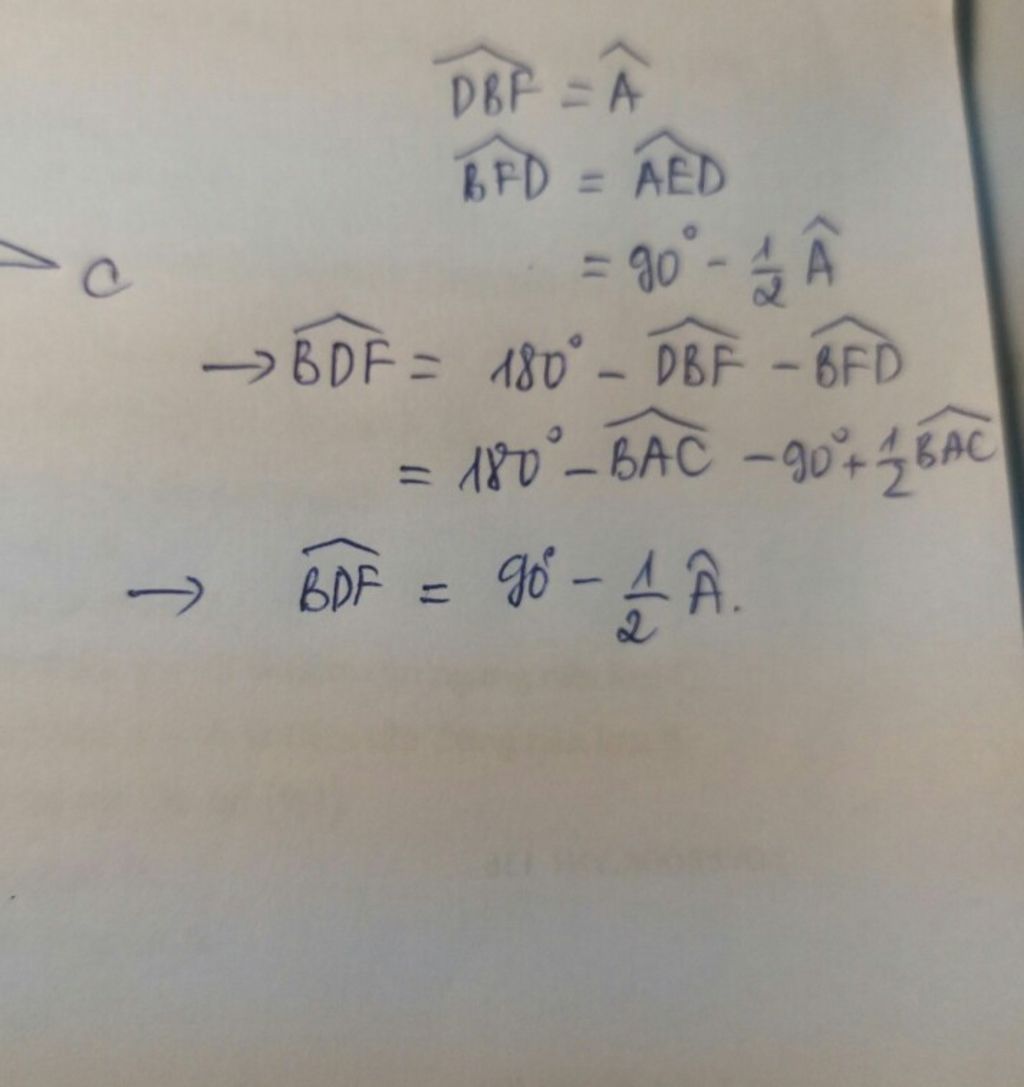 $\widehat{DBF} = \widehat{A}$
$\widehat{BFD} = \widehat{AED}$
$= 90^\circ - \frac{1}{2} \widehat{A}$
C
$\rightarrow \widehat{BDF} = 180^\circ - \widehat{DBF} - \widehat{BFD}$
$= 180^\circ - \widehat{BAC} - 90^\circ + \frac{1}{2} \widehat{BAC}$
$\rightarrow \widehat{BDF} = 90^\circ - \frac{1}{2} \widehat{A}.$